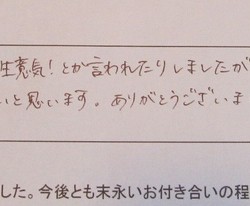 生意気！とか言われたりしましたが
いと思います。ありがとうございま
した。今後とも末永いお付き合いの程